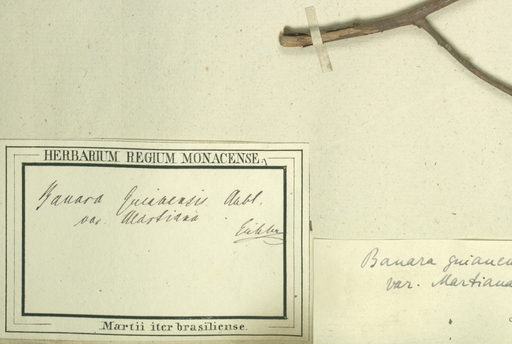 HERBARIUM REGIUM MONACENSE.
Banara Guianensis Aubl.
var. Martiana
Martii iter brasiliense.
Banara guianen
var. Martiana